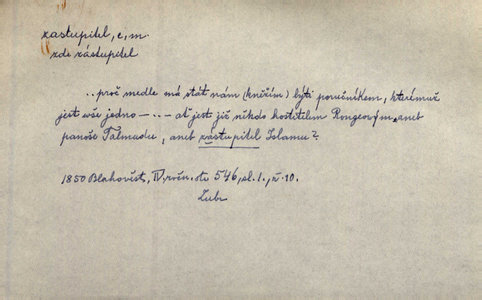 zastupitel, e, m.
zde zástupitel
.. proč medle má stát nám (kněžím) býti poručníkem, kterémuž
jest vše jedno — .. — ať jest již někdo hostitelem Rongeovým, anet
panoše Talmudu, anet zástupitel Islamu?
1850 Blahověst, IV, str. 546, sl. 1, ř. 10.